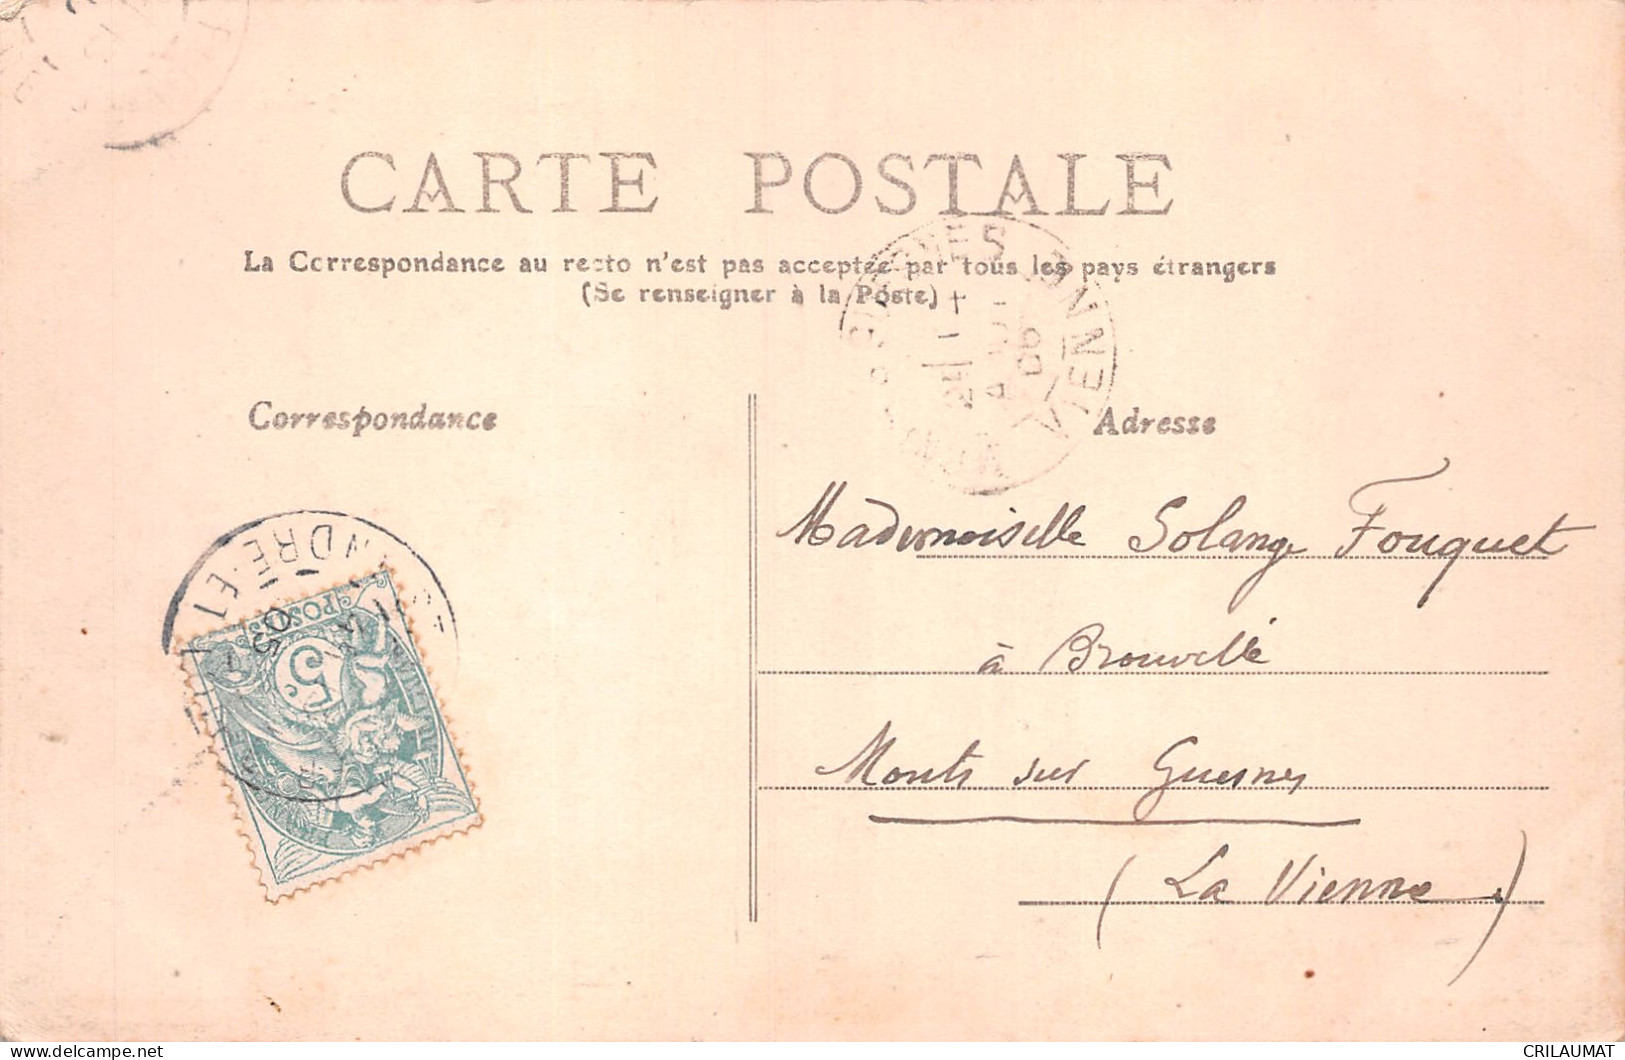 CARTE POSTALE
La Correspondance au recto n'est pas acceptée par tous les pays étrangers
(Se renseigner à la Poste)
Correspondance
Adresse
VIENNE
Mademoiselle Solange Fouquet
à Brouvellé
Monts sur Guesnes
(La Vienne)
INDRE-ET-L
05
POSTES
5
CRILAUMAT